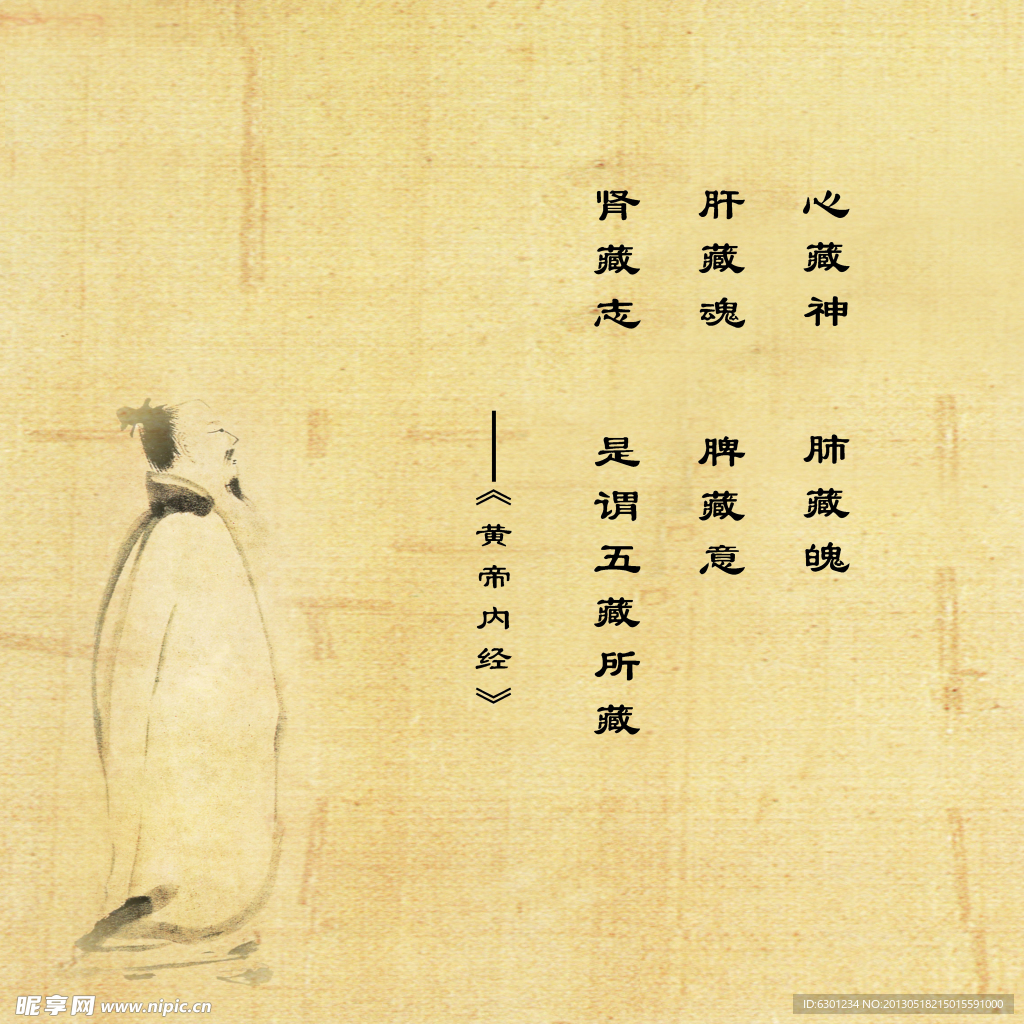 心藏神 肺藏魄
肝藏魂 脾藏意
肾藏志 是谓五藏所藏
——《黄帝内经》
昵享网 www.nipic.cn
ID:6301234 NO:20130518215015591000